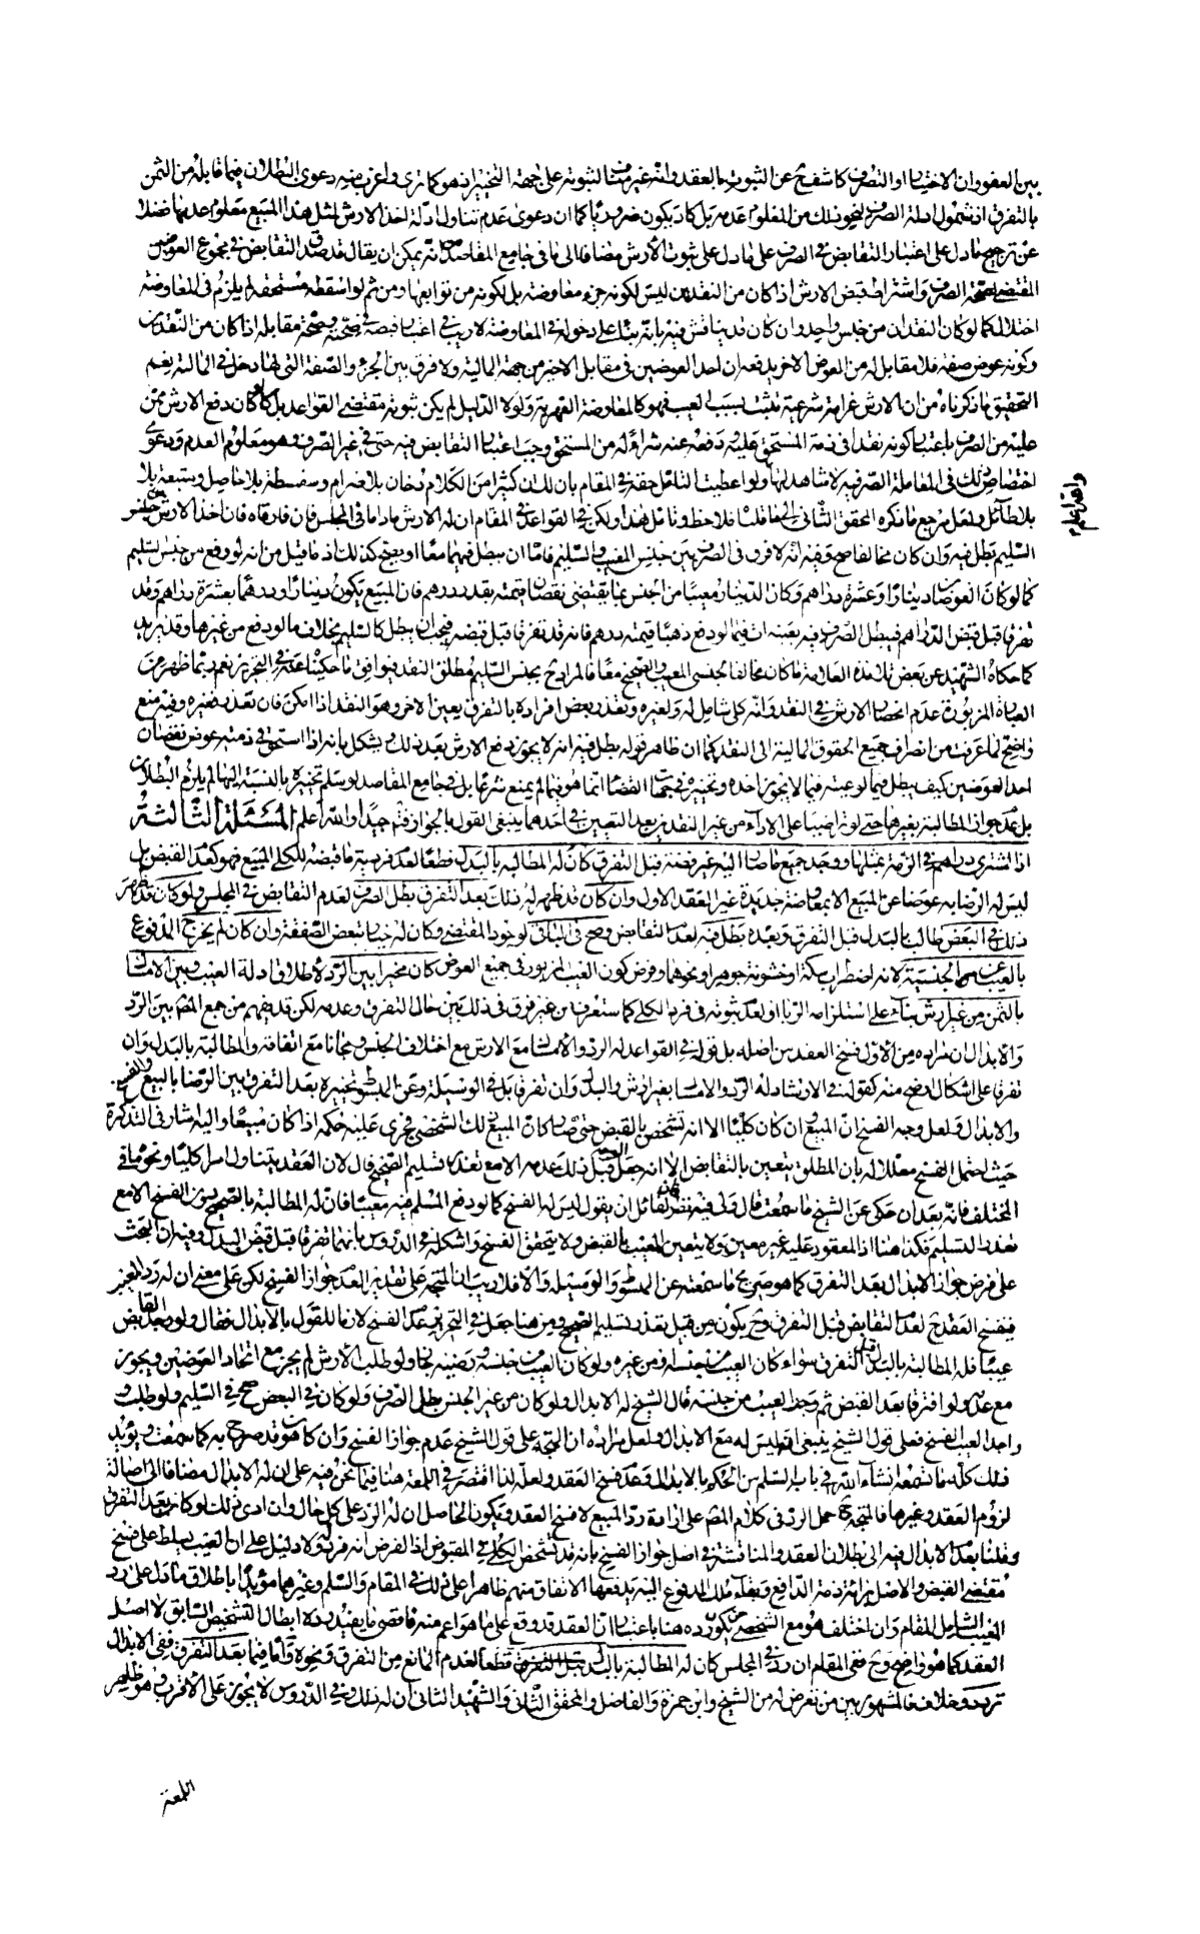 بين العقود ان الاختيار او التصرف كاشف عن الثبوت بالعقد وانه غير مناف لثبوته على جهة التخيير اذ هو كما ترى واغرب منه دعوى البطلان فيما قابله من الثمن
بالتفرق اذ شمول ادلة الصرف لنحو ذلك من المعلوم عدمه بل كاد يكون ضروريا كما ان دعوى عدم تناول ادلة اخذ الارش لمثل هذا المبيع معلوم عدمها فضلا
عن ترجيح ما دل على اعتبار التقابض في الصرف على ما دل على ثبوت الأرش مضافا الى ما في جامع المقاصد من انه يمكن ان يقال قد صدق التقابض في مجموع العوضين
المقتضي لصحة الصرف واشتراط قبض الارش اذا كان من النقدين ليس لكونه جزء معاوضة بل لكونه من توابعها ومن ثم لو اسقطه مستحقه لم يلزم في المعاوضة
اختلال كما لو كان النقدان من جنس واحد وان كان قد يناقش فيه بانه بناء على دخوله في المعاوضة لا ريب في اعتبار قبضه في صحته وصحة مقابله اذا كان من النقدين
وكونه عوض صفة فلا مقابل له من العوض الاخر يدفعه ان احد العوضين في مقابل الاخر من جهة المالية ولا فرق بين الجزء والصفة التي لها دخل في المالية نعم
التحقيق ما ذكرناه من ان الارش غرامة شرعية تثبت بسبب العيب فهو كالمعاوضة القهرية ولولا الدليل لم يكن ثبوته مقتضى القواعد بل كما لو كان دفع الارش ممن
عليه من الصرف باعتبار كونه نقدا في ذمة المستحق عليه دفعه عنه شراء له من المستحق وجب اعتبار التقابض فيه حتى في غير الصرف وهو معلوم العدم ودعوى
اختصاص ذلك في المعاملة الصرفية لا شاهد لها ولو اعطيت التأمل حقه في المقام بان لك ان كثيرا من الكلام دخان بلا ضرام وسفسطة بلا حاصل وستعبة بلا
بلا طائل ولعل مرجع ما ذكره المحقق الثاني الى ما قلنا فلاحظ وتأمل هذا ولكن في القواعد في المقام ان له الارش ما داما في المجلس فان فارقاه فان اخذ الارش من جنس
السليم بطل فيه وان كان مخالفا صح وفيه انه لا فرق في الصرف بين جنس المعيب والسليم فاما ان يبطل فيهما معا او يصح كذلك اذ ما قيل من انه لو دفع من جنس السليم
كما لو كان العوضان دينارا وعشرة دراهم وكان الدينار معيبا من الجنس بما يقتضي نقصان قيمته بقدر درهم فان المبيع يكون دينارا ودرهما بعشرة دراهم وقد
تفرقا قبل قبض الدراهم فيبطل الصرف فيه بعينه ات فيما لو دفع ذهبا قيمته درهم فانه قد تفرقا قبل قبضه فيجب ان يبطل كالسليم بخلاف ما لو دفع من غيرها وقد يريد
كما حكاه الشهيد عن بعض تلامذة العلامة ما كان مخالفا لجنسي المعيب والصحيح معا فالمراد ح بجنس السليم مطلق النقد فيوافق ما حكيناه عنه في التحرير نعم ربما ظهر من
العبارة المزبورة عدم انحصار الارش في النقد وانه كلي شامل له ولغيره وتعذر بعض افراده بالتفرق يعين الاخر وهو النقد اذا امكن فان تعذر فغيره وفيه منع
واضح لما عرفت من انصراف جميع الحقوق المالية الى النقد كما ان ظاهر قوله بطل فيه انه لا يجوز دفع الارش بعد ذلك ويشكل بانه اذا استحق في ذمته عوض نقصان
احد العوضين كيف يبطل فيما لو عينه فيما لا يجوز اخذه وتخييره في جهات القضاء انما هو فيما لم يمنع شرعا بل في جامع المقاصد لو سلم تخييره بالنسبة اليها لم يلزم البطلان
بل عدم جواز المطالبة بغيرها حتى لو تراضيا على الاداء من غير النقدين بعد التعيين في احدهما ينبغي القول بالجواز فتأمل جيدا والله اعلم المسئلة الثالثة
اذا اشترى دراهم في الذمة بمثلها ووجد جميع ما صار اليه غير فضة قبل التفرق كان له المطالبة بالبدل قطعا لعدم فردية ما قبضه للكلي المبيع فهو كعدم القبض بل
ليس له الرضا به عوضا عن المبيع الا بمعاوضة جديدة غير العقد الاول وان كان قد ظهر له ذلك بعد التفرق بطل الصرف لعدم التقابض في المجلس ولو كان قد ظهر
ذلك في البعض طالب بالبدل قبل التفرق وبعده بطل فيه لعدم التقابض وصح في الباقي لوجود المقتضي وكان له خيار تبعض الصفقة وان كان لم يخرج المدفوع
بالعيب عن الجنسية لانه اضطراب سكة او خشونة جوهر او نحوهما وفرض كون العيب المزبور في جميع العوض كان مخيرا بين الرد لاطلاق ادلة العيب وبين الامساك
بالثمن من غير ارش بناء على استلزامه الربا او لعدم ثبوته في فرد الكلي كما ستعرف من غير فرق في ذلك بين حال التفرق وعدمه لكن قد يفهم من جمع المصنف بين الرد
والابدال ان مراده من الاول فسخ العقد من اصله بل قوله في القواعد له الرد والامساك مع الارش مع اختلاف الجنس ومجانا مع اتفاقه والمطالبة بالبدل وان
تفرقا على اشكال اوضح منه كقوله في الارشاد له الرد والامساك بغير ارش والبدل وان تفرقا بل في الوسيلة وعن المبسوط تخييره بعد التفرق بين الرضا بالبيع والفسخ
والابدال ولعل وجه الفسخ ان المبيع وان كان كليا الا انه تشخص بالقبض حتى صار كان المبيع ذلك الشخصي فجرى عليه حكمه اذا كان مبيعا واليه اشار في التذكرة
حيث احتمل الفسخ معللا له بان المطلق يتعين بالتقابض الا انه جعل قبل ذلك عدمه الا مع تعذر تسليم الصحيح قال لان العقد يتناول امرا كليا ونحوه ما في
المختلف فانه بعد ان حكى عن الشيخ ما سمعت قال ولي فيه نظر لقائل ان يقول ليس له الفسخ كما لو دفع المسلم فيه معيبا فان له المطالبة بالصحيح دون الفسخ الا مع
تعذر التسليم فكذا هنا اذ المعقود عليه غير معين ولا يتعين المعيب بالقبض ولا يتحقق الفسخ واشكله في الدروس بانهما تفرقا قبل قبض البدل وفيه ان البحث
على فرض جواز الابدال بعد التفرق كما هو صريح ما سمعته عن المبسوط والوسيلة والا فلا ريب ان المتجه على تقدير العدم جواز الفسخ لكن على معنى ان له رد المعيب
فيفسخ العقد ح لعدم التقابض قبل التفرق وح يكون من قبل تعذر تسليم الصحيح ومن هنا جعل في التحرير عدم الفسخ لازما للقول بالابدال فقال ولو وجد القابض
عيبا فله المطالبة بالبدل قبل التفرق سواء كان العيب من جنسه او من غيره ولو كان العيب من جنسه ورضيه جاز ولو طلب الارش لم يجز مع اتحاد العوضين ويجوز
مع عدمه ولو افترقا بعد القبض ثم وجد العيب من جنسه قال الشيخ له الابدال ولو كان من غير الجنس بطل الصرف ولو كان في البعض صح في السليم ولو طلب
واجد العيب الفسخ فعلى قول الشيخ ينبغي انه ليس له مع الابدال ولعل مراده ان المتجه على قول الشيخ عدم جواز الفسخ وان كان هو قد صرح به كما سمعت ويؤيد
ذلك كله ما تسمعه انشاء الله في باب السلم من الحكم بالابدال وعدم فسخ العقد ولعله لذا اقتصر في اللمعة هنا فيما نحن فيه على ان له الابدال مضافا الى اصالة
لزوم العقد وغيرها فالمتجه ح حمل الرد في كلام المصنف على ارادة رد المبيع لا فسخ العقد ويكون الحاصل ان له الرد على كل حال وان ادى ذلك لو كان بعد التفرق
وقلنا بعدم الابدال فيه الى بطلان العقد والمناقشة في اصل جواز الفسخ بانه قد تشخص الكلي في المقبوض اذ الفرض انه فرد له ولا دليل على ان العيب يسلط على فسخ
مقتضى القبض والاصل براءة ذمة الدافع وبقاء ملك المدفوع اليه يدفعها الاتفاق منهم ظاهرا على ذلك في المقام والسلم وغيرهما مؤيدا باطلاق ما دل على رد
العيب الشامل للمقام وان اختلف هو مع الشخصي بكون رده هنا باعتبار ان العقد قد وقع على ما هو اعم منه فاقصى ما يفيد رده ابطال التشخيص السابق لا اصل
العقد كما هو واضح وح ففي المقام ان رد في المجلس كان له المطالبة بالبدل قبل التفرق قطعا لعدم المانع من التفرق ونحوه واما فيما بعد التفرق ففي الابدال
تردد وخلاف فالمشهور بين من تعرض له من الشيخ وابن حمزة والفاضل والمحقق الثاني والشهيد الثاني ان له ذلك وفي الدروس لا يجوز على الاقرب وهو ظاهر
اللمعة
والله اعلم